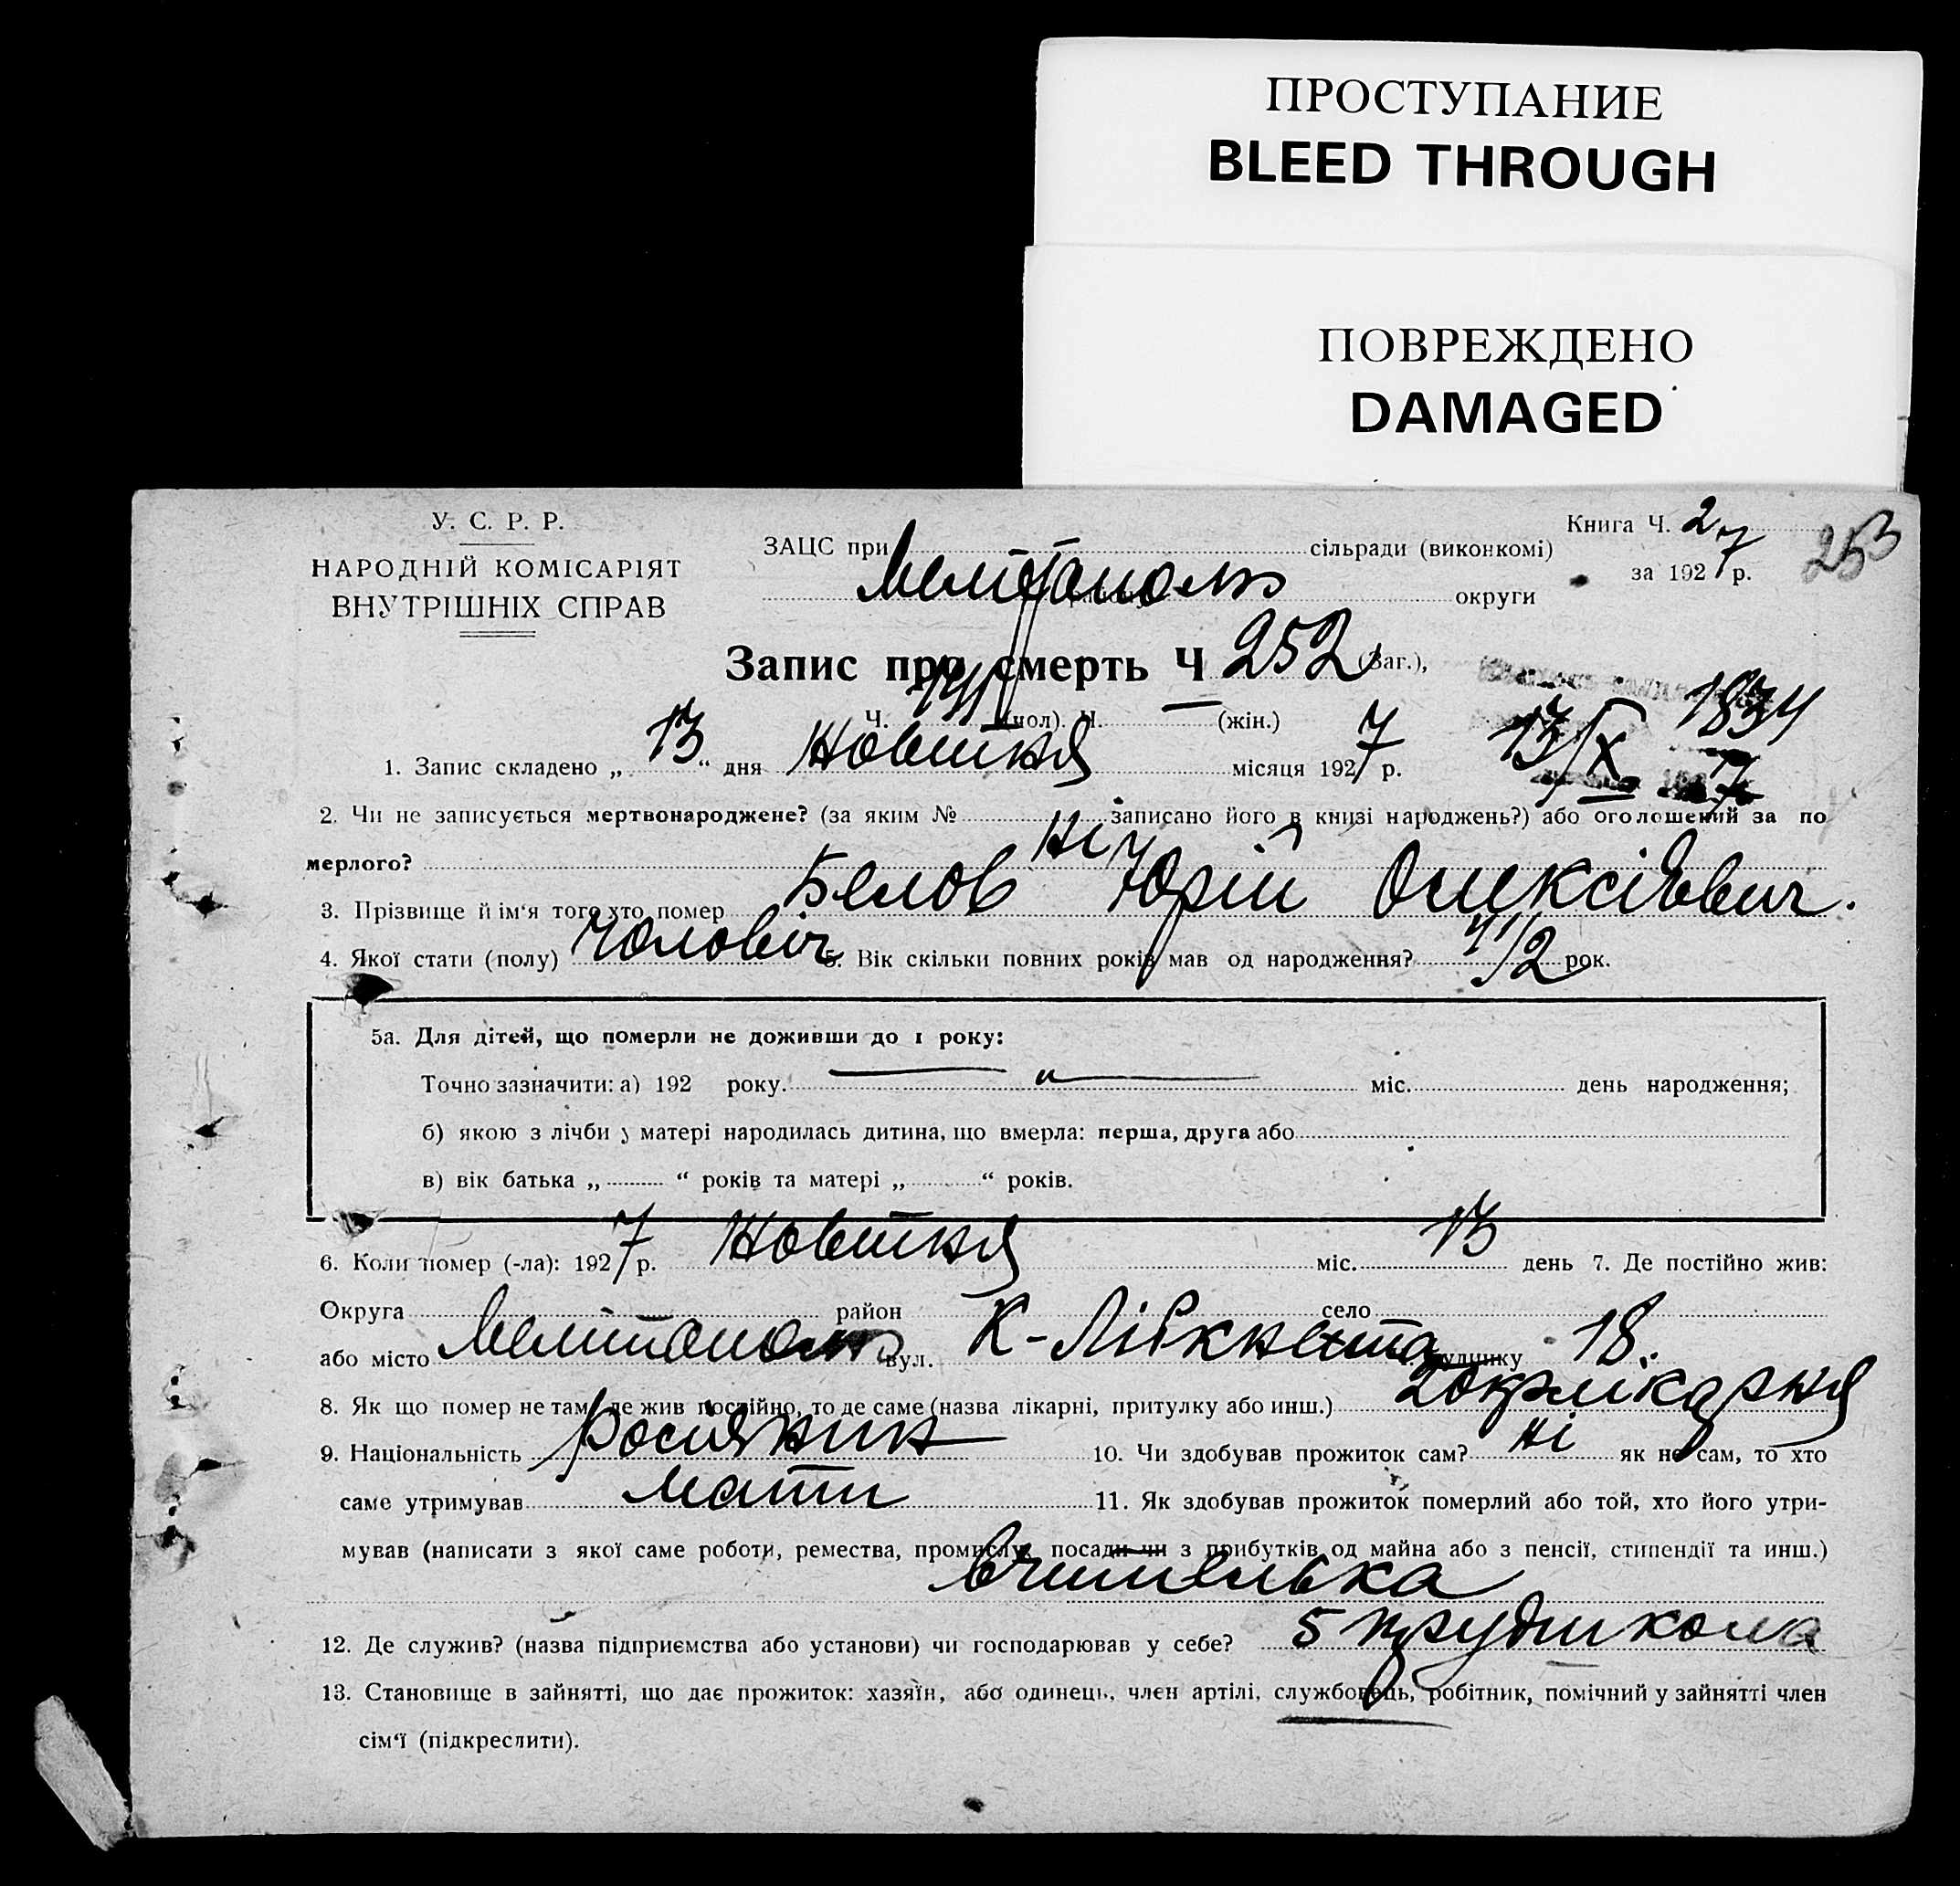 ПРОСТУПАНИЕ
BLEED THROUGH
ПОВРЕЖДЕНО
DAMAGED
У. С. Р. Р.
НАРОДНІЙ КОМІСАРІЯТ
ВНУТРІШНІХ СПРАВ
Книга Ч. 2
за 1927 р.
253
ЗАЦС при сільради (виконкомі)
Мелітополь округи
Запис про смерть Ч 252 (Заг.),
Ч. (чол). Ч. — (жін.)
13/X 1834
7
1. Запис складено „ 13 “ дня Жовтня місяця 1927 р.
2. Чи не записується мертвонароджене? (за яким № записано його в книзі народжень?) або оголошений за по
мерлого? Ні
3. Прізвище й ім'я того хто помер Белов Юрій Олексієвич.
4. Якої стати (полу) Чоловіч 5. Вік скільки повних років мав од народження? 4 1/2 рок.
5а. Для дітей, що померли не доживши до 1 року:
Точно зазначити: а) 192 року. — „ — міс. день народження;
б) якою з лічби у матері народилась дитина, що вмерла: перша, друга або
в) вік батька „ “ років та матері „ “ років.
6. Коли помер (-ла): 1927 р. Жовтня міс. 13 день 7. Де постійно жив:
Округа район село
або місто Мелітополь вул. К-Лібкнехта будинку 18.
8. Як що помер не там, де жив постійно, то де саме (назва лікарні, притулку або инш.) Окрлікарня
9. Національність Росіянин 10. Чи здобував прожиток сам? Ні як не сам, то хто
саме утримував мати 11. Як здобував прожиток померлий або той, хто його утри-
мував (написати з якої саме роботи, ремества, промислу, посади чи з прибутків од майна або з пенсії, стипендії та инш.)
вчителька
12. Де служив? (назва підприємства або установи) чи господарював у себе? 5 трудшкола
13. Становище в зайнятті, що дає прожиток: хазяїн, або одинець, член артілі, службовець, робітник, помічний у зайнятті член
сім'ї (підкреслити).